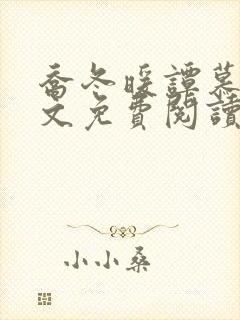 喬冬暖譚慕
文免費閱讀
小小桑